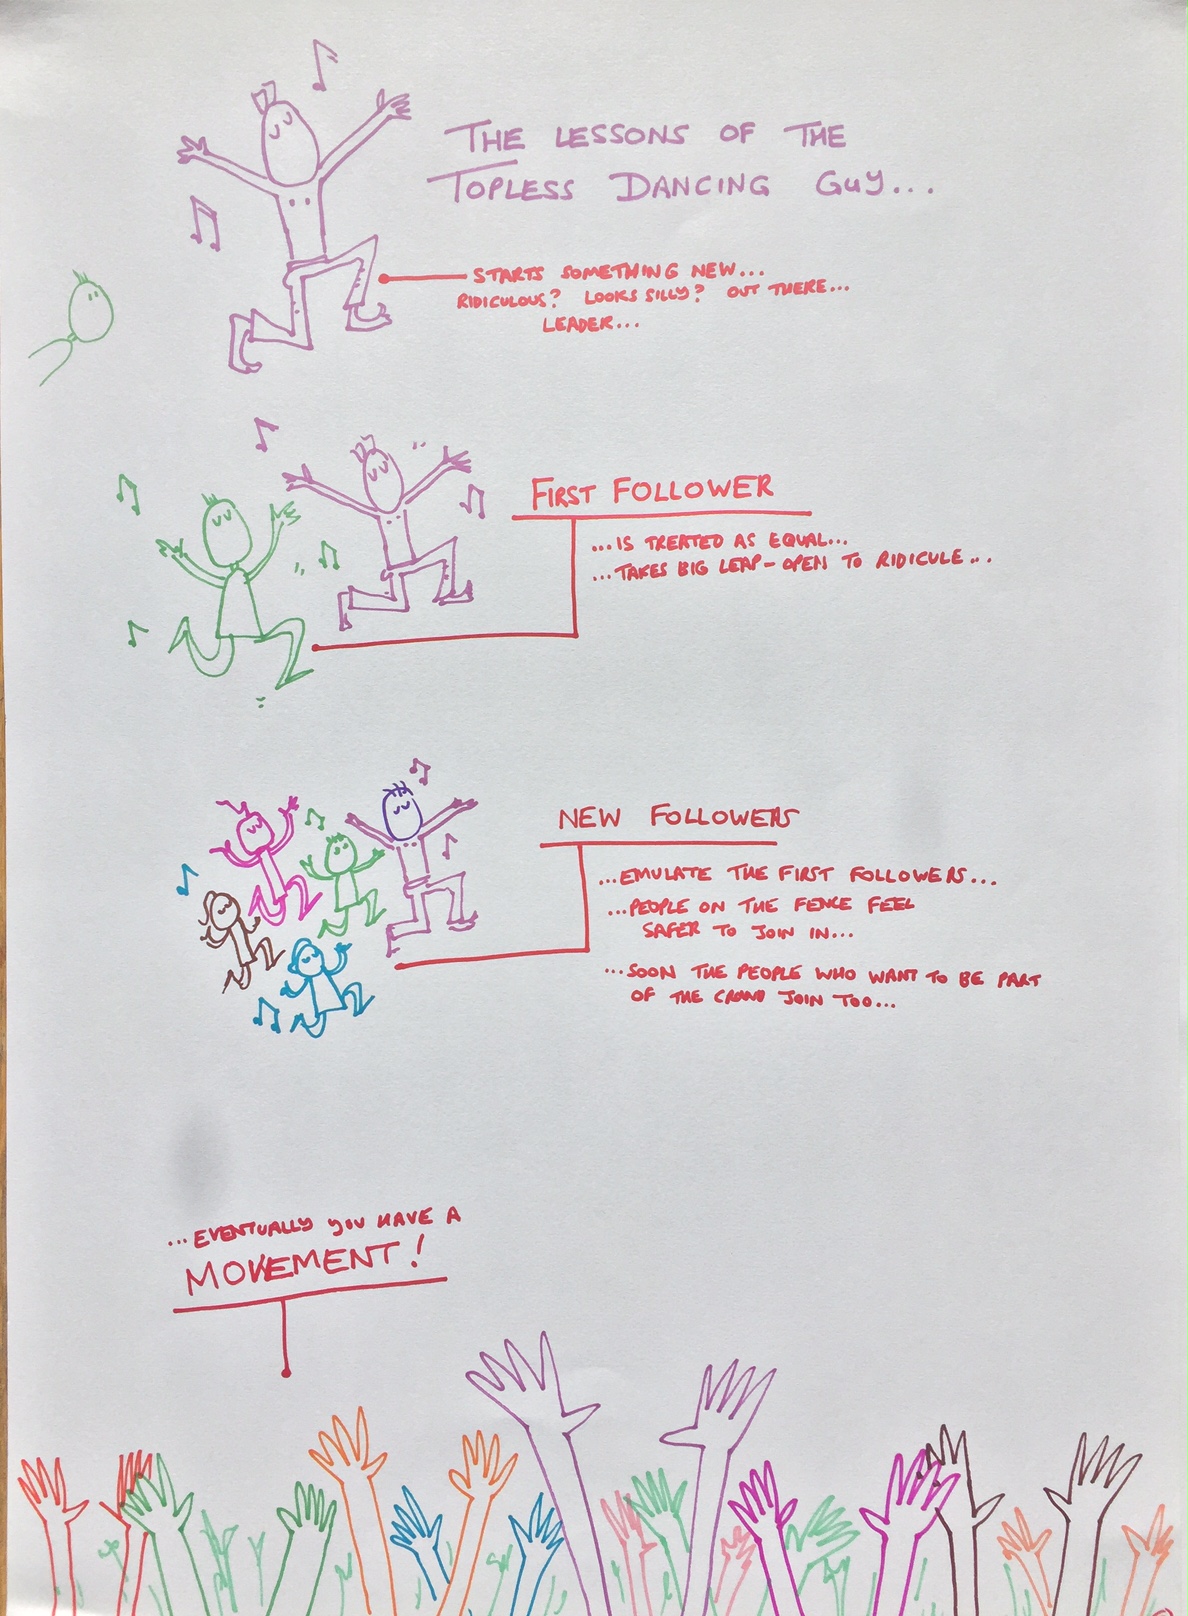 THE LESSONS OF THE
TOPLESS DANCING GUY...
STARTS SOMETHING NEW...
RIDICULOUS? LOOKS SILLY? OUT THERE...
LEADER...
FIRST FOLLOWER
...IS TREATED AS EQUAL...
...TAKES BIG LEAP - OPEN TO RIDICULE...
NEW FOLLOWERS
...EMULATE THE FIRST FOLLOWERS...
...PEOPLE ON THE FENCE FEEL
SAFER TO JOIN IN...
...SOON THE PEOPLE WHO WANT TO BE PART
OF THE CROWD JOIN TOO...
...EVENTUALLY YOU HAVE A
MOVEMENT!